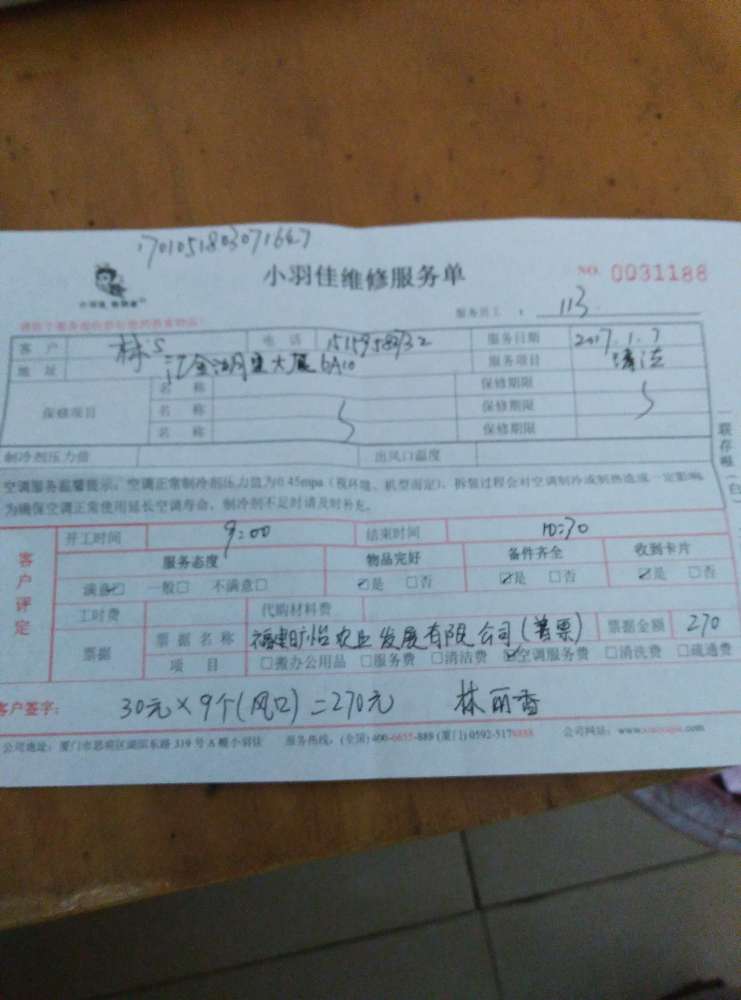 小羽佳维修服务单
NO. 0031188
服务员工： 113
客户 林's 电话 服务日期 2017.1.7
地址 大厦6A10 服务项目 清洁
保修项目 名称 保修期限
名称 保修期限
名称 保修期限
制冷剂压力值 出风口温度
空调服务温馨提示：空调正常制冷剂压力值为0.45mpa（视环境、机型而定），拆装过程会对空调制冷或制热造成一定影响，
为确保空调正常使用延长空调寿命，制冷剂不足时请及时补充。
客户评定
开工时间 9:00 结束时间 10:30
服务态度 物品完好 备件齐全 收到卡片
满意☑ 一般□ 不满意□ ☑是 □否 ☑是 □否 ☑是 □否
工时费 代购材料费
票据 票据名称 福建旷怡农业发展有限公司(普票) 票据金额 270
项目 □搬办公用品 □服务费 □清洁费 ☑空调服务费 □清洗费 □疏通费
客户签字： 30元×9个(风口)=270元 林丽香
公司地址：厦门市思明区湖滨东路319号A幢小羽佳 服务热线：(全国)400-6655-889 (厦门)0592-5178888 公司网站：